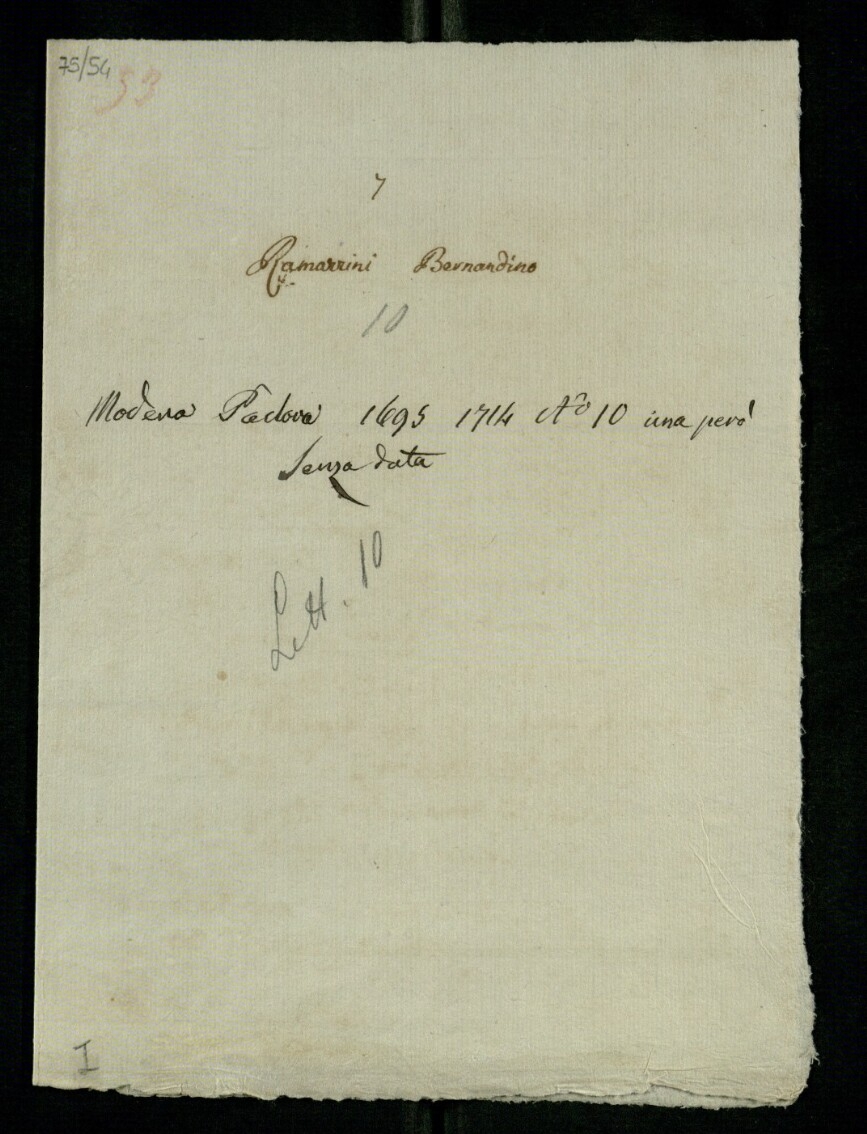 75/54
53
7
Ramazzini Bernardino
10
Modena Padova 1695 1714 No 10 una però
Senza data
Lett. 10
I